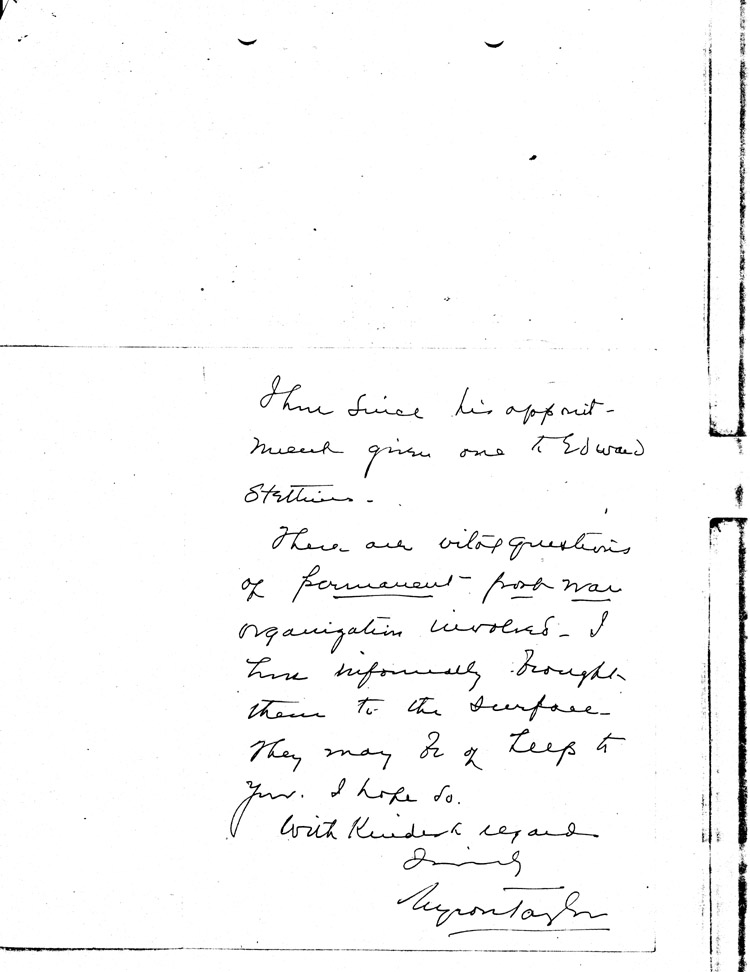 I have since his appoint-
ment given one to Edward
Stettinius -
There are vital questions
of permanent post war
organization involved - I
have informally brought
them to the surface -
They may be of help to
you. I hope so.
With kindest regards
Sincerely
Myron Taylor